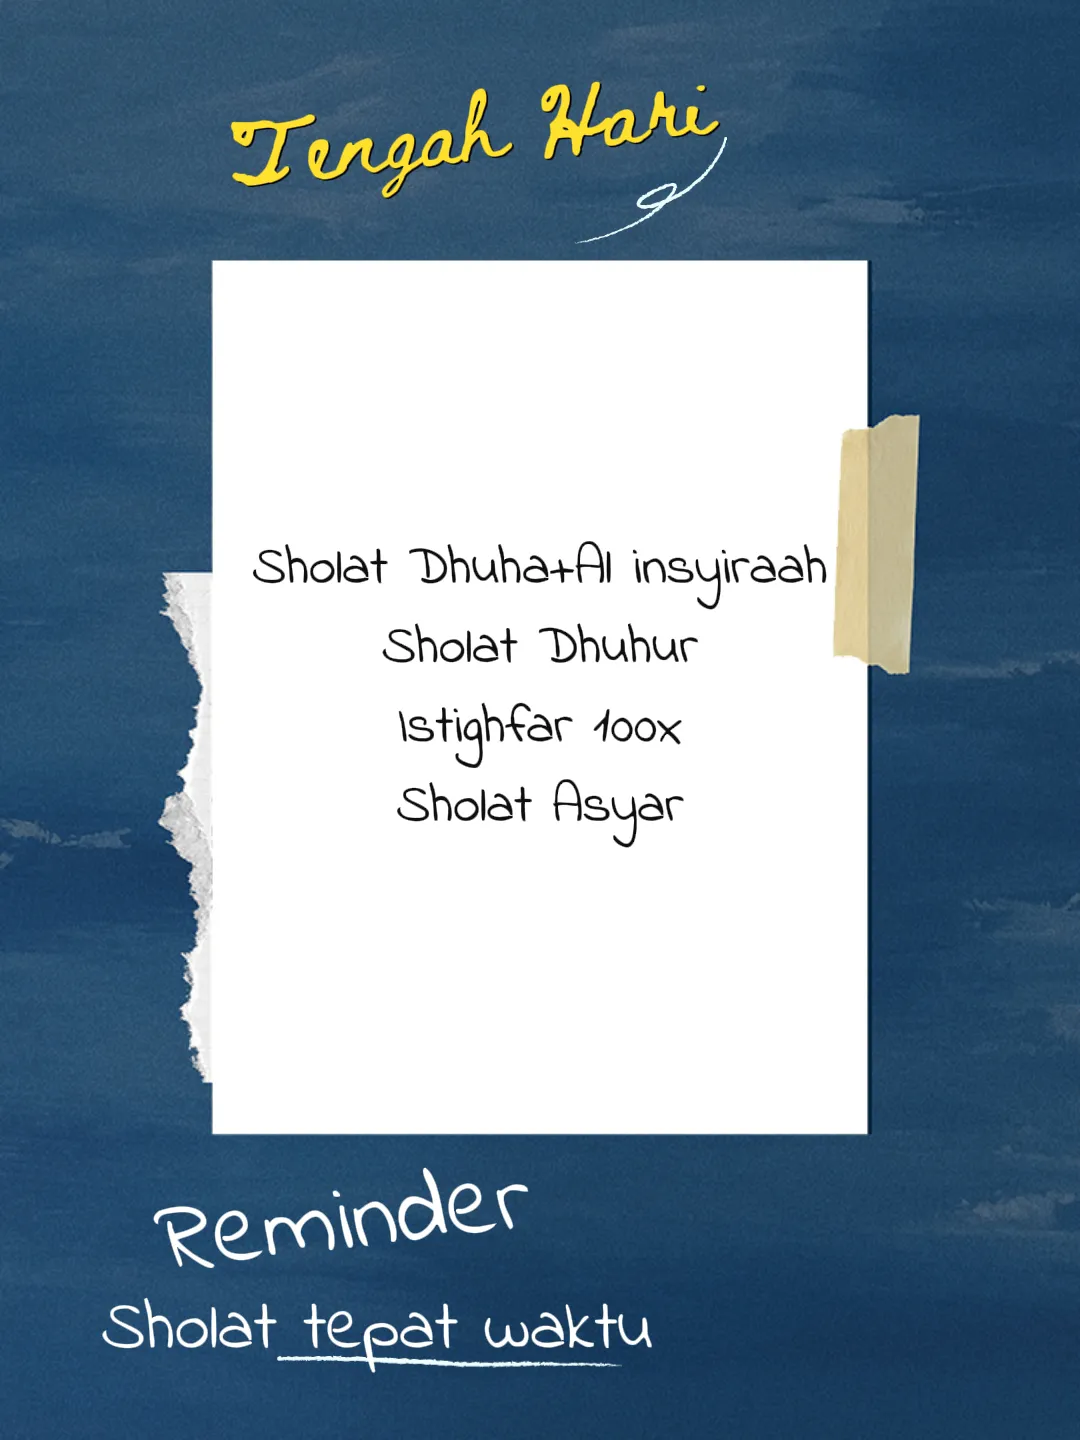 Tengah Hari
Sholat Dhuha+Al insyiraah
Sholat Dhuhur
Istighfar 100x
Sholat Asyar
Reminder
Sholat tepat waktu